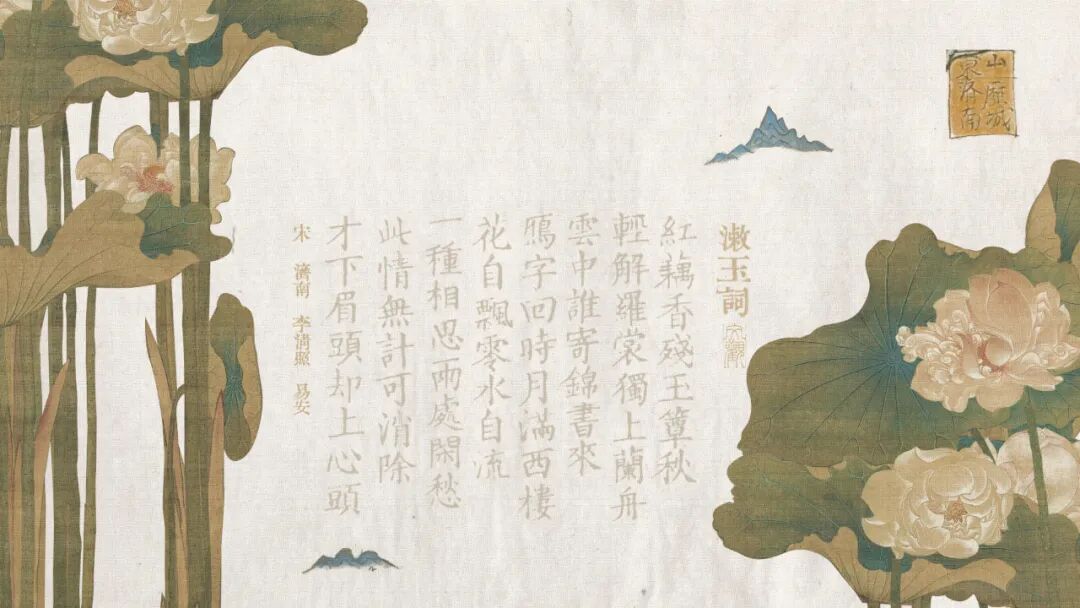 漱玉詞
紅藕香殘玉簟秋
輕解羅裳獨上蘭舟
雲中誰寄錦書來
鴈字回時月滿西樓
花自飄零水自流
一種相思兩處閑愁
此情無計可消除
才下眉頭却上心頭
宋 濟南 李清照 易安